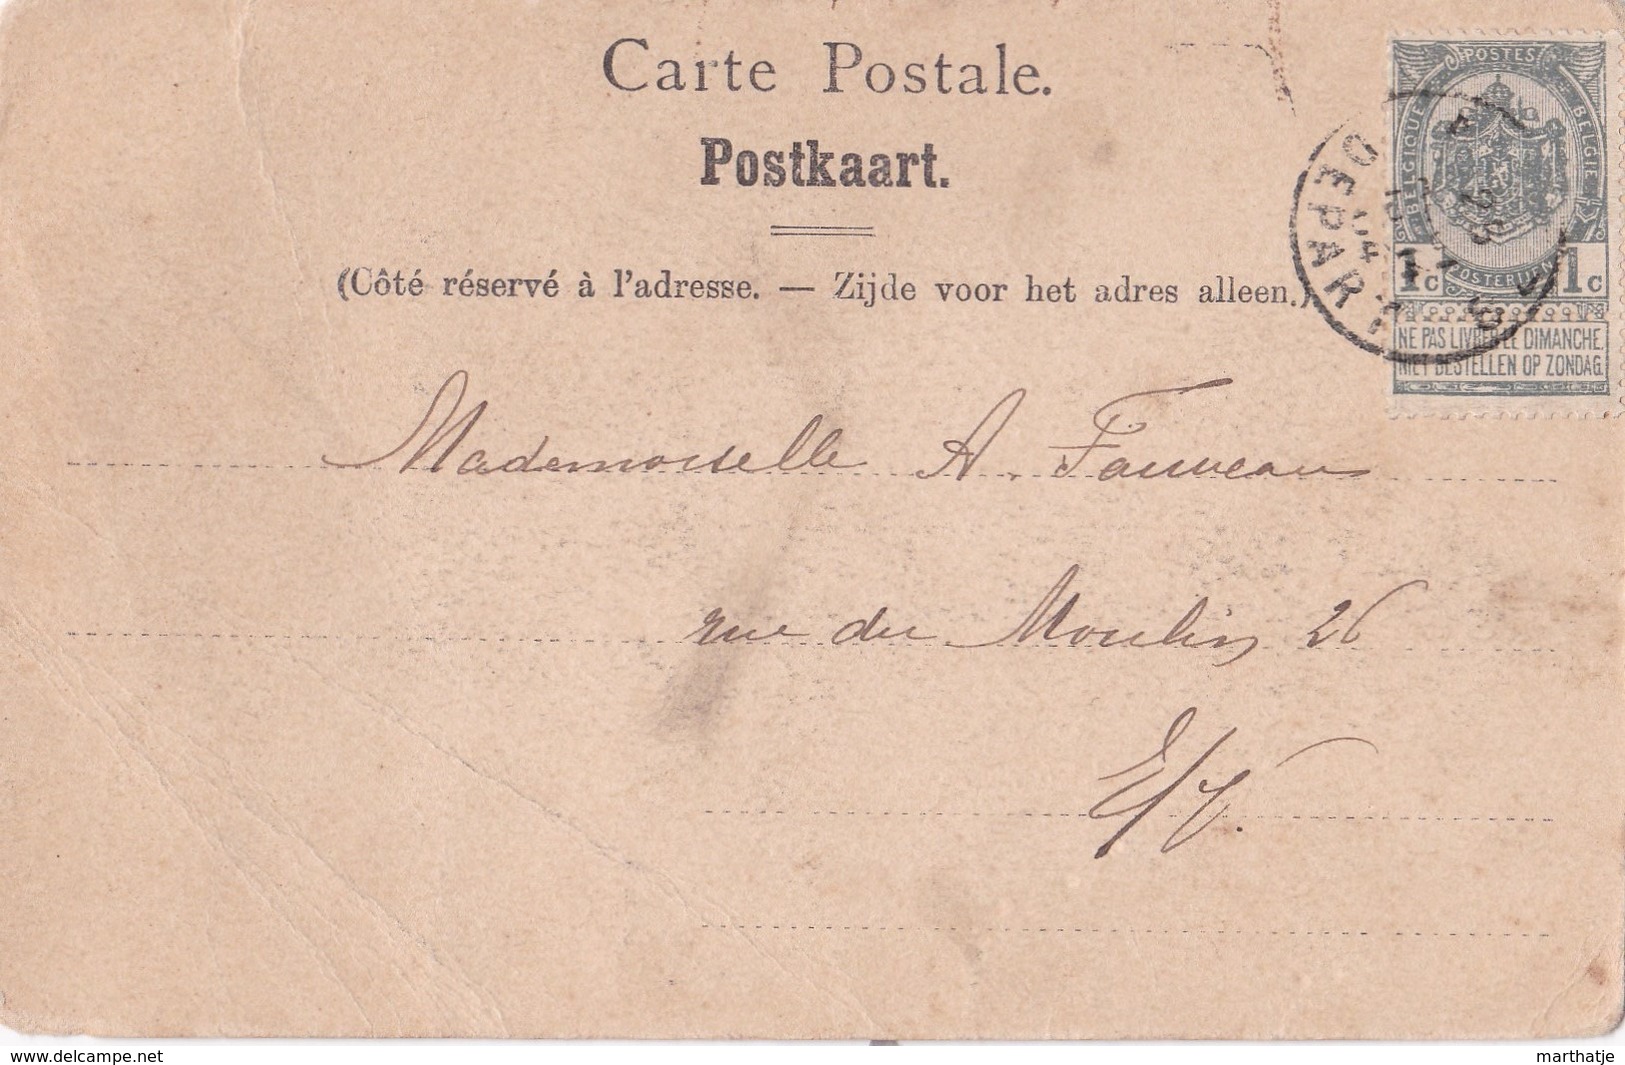 Carte Postale.
Postkaart.
(Côté réservé à l'adresse. — Zijde voor het adres alleen.)
POSTES
BELGIQUE
BELGIE
POSTERIJEN
1c 1c
NE PAS LIVRER LE DIMANCHE.
NIET BESTELLEN OP ZONDAG.
DEPART
Mademoiselle A. Fauveau
rue du Moulin 26
E/V.
www.delcampe.net
marthatje